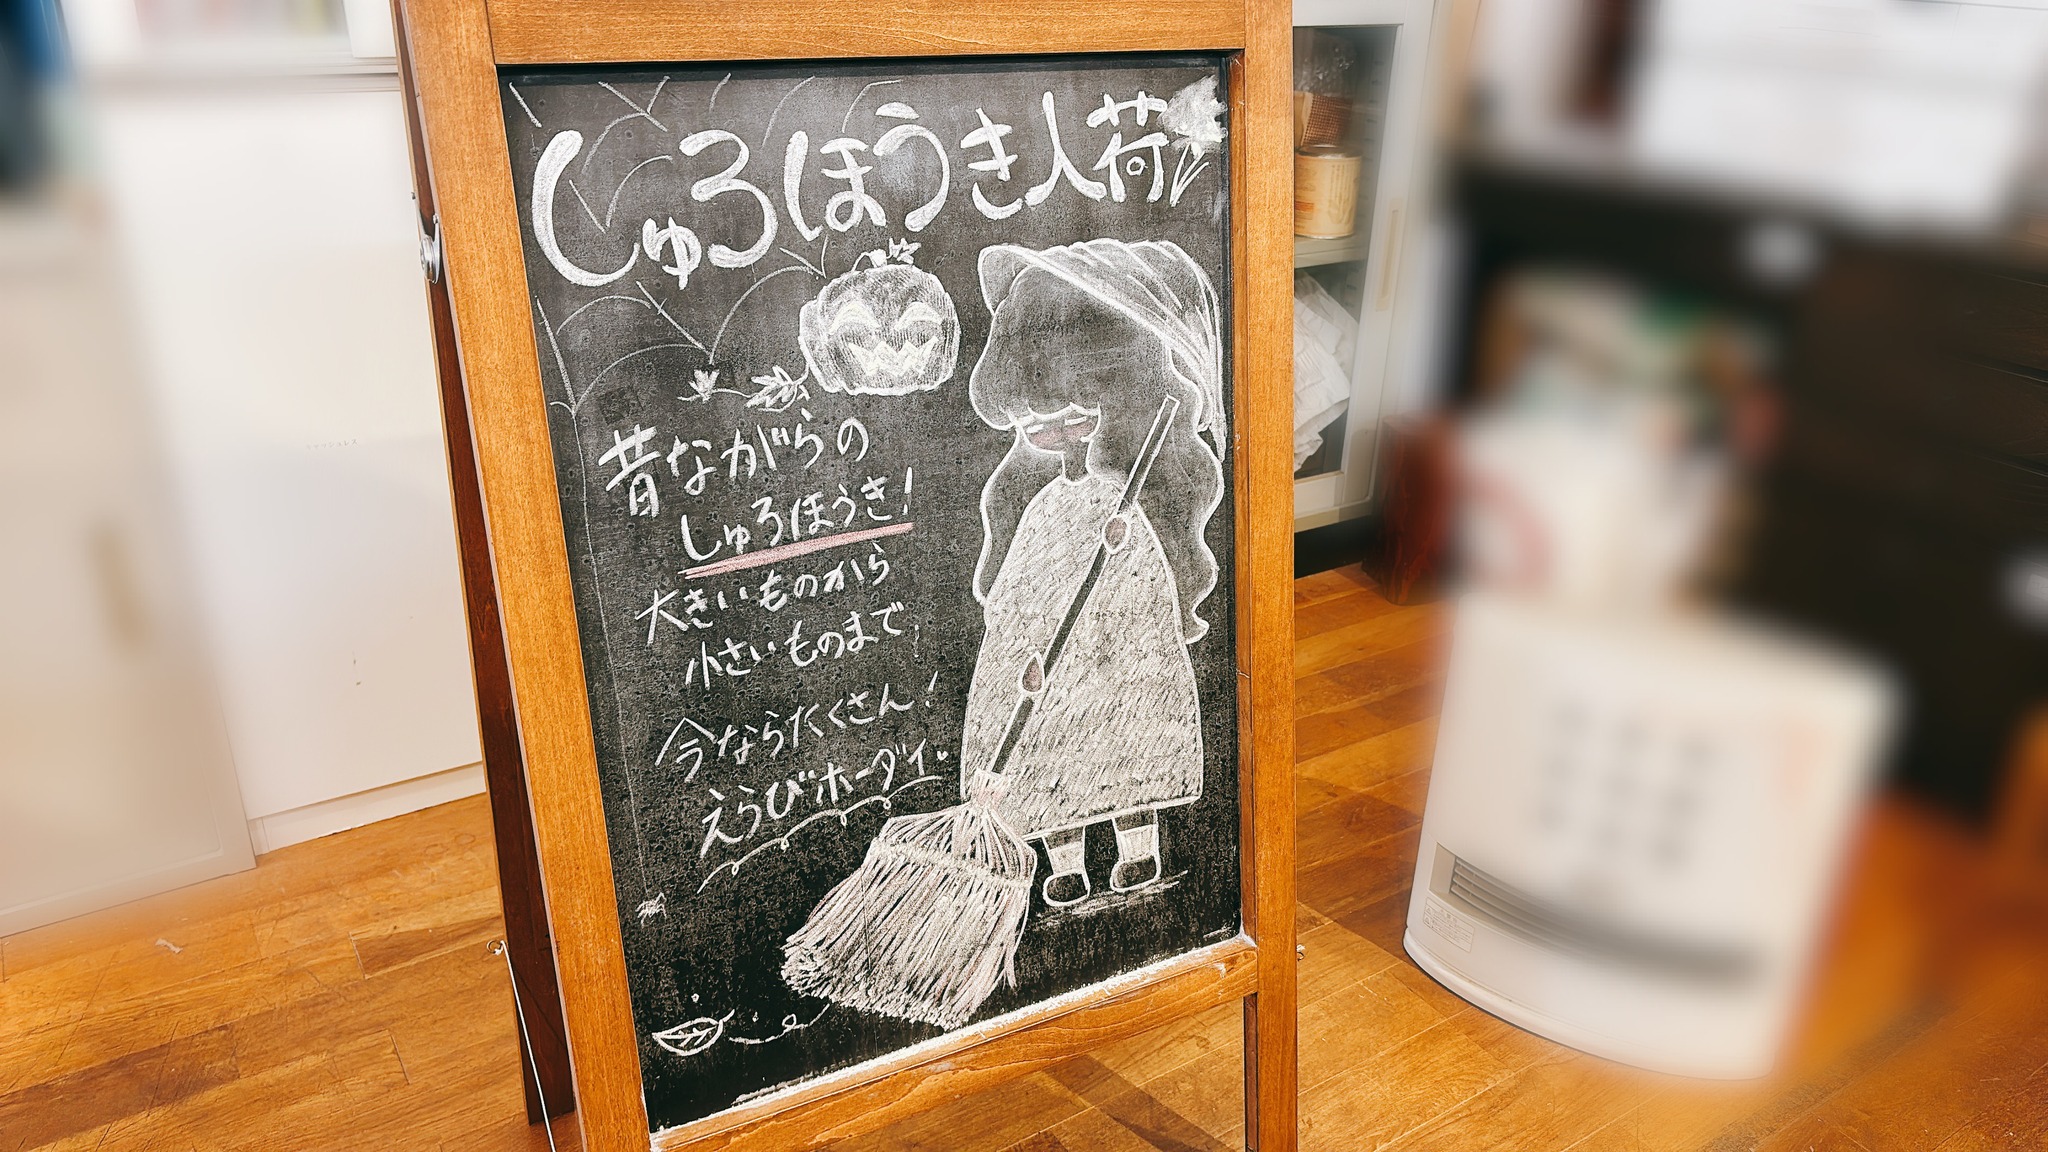 しゅろほうき入荷
昔ながらの
しゅろほうき!
大きいものから
小さいものまで
今ならたくさん!
えらびホーダイ。